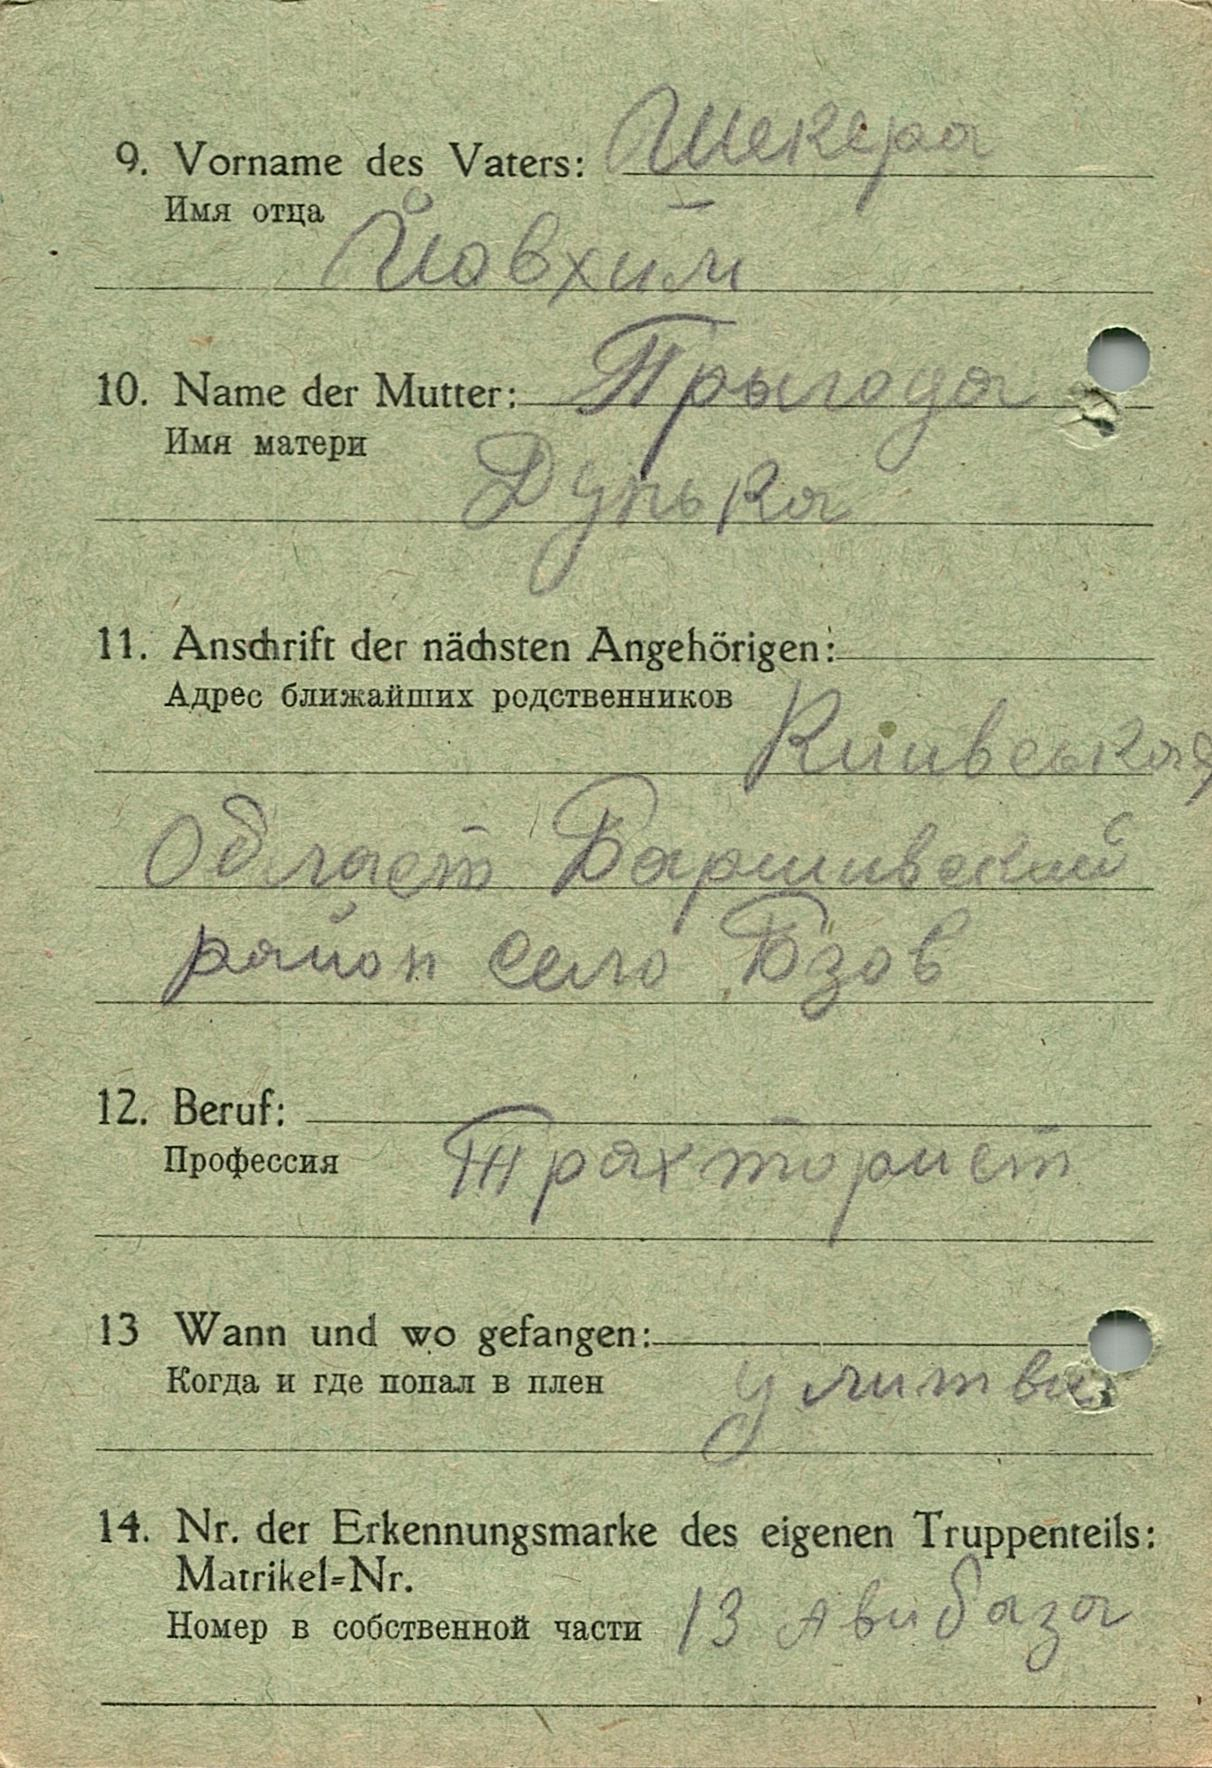 9. Vorname des Vaters: Шекера
Имя отца
Йовхим
10. Name der Mutter: Прыгода
Имя матери
Дунька
11. Anschrift der nächsten Angehörigen:
Адрес ближайших родственников
Киивськая
Област Баришивский
район село Бзов
12. Beruf:
Профессия Трахторист
13 Wann und wo gefangen:
Когда и где попал в плен у литви
14. Nr. der Erkennungsmarke des eigenen Truppenteils:
Matrikel=Nr.
Номер в собственной части 13 авибаза